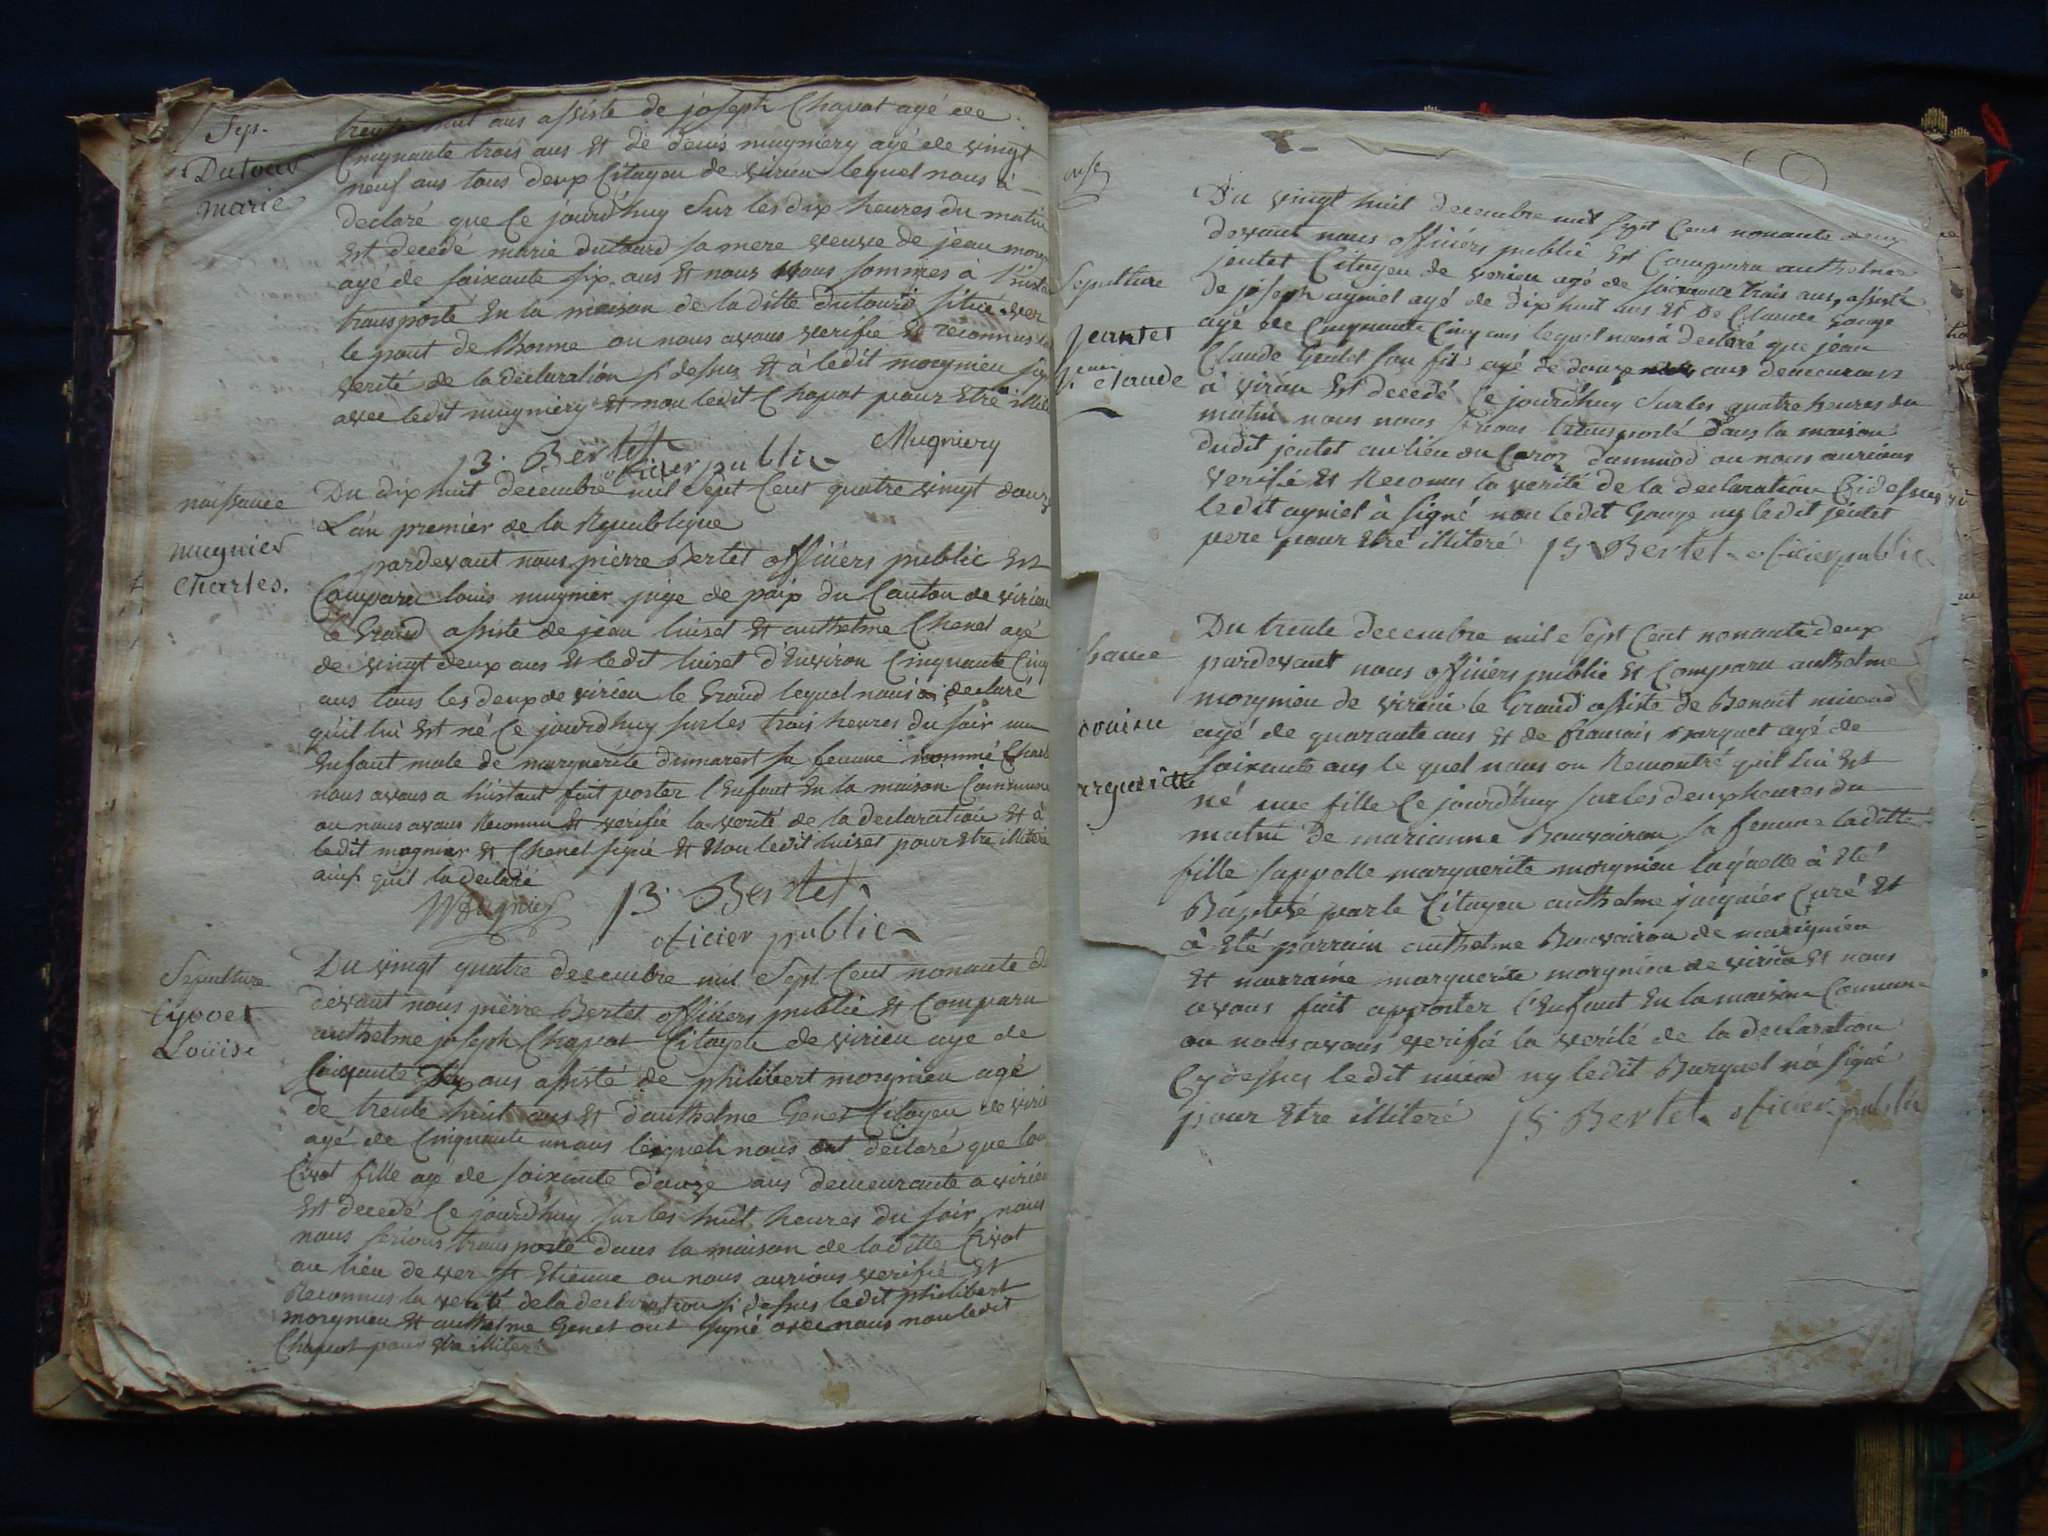 Sep.
Dutour
marie
trente huit ans assiste de joseph Chapot agé de
Cinquante trois ans Et de denis mugniery agé de vingt
neuf ans tous deux Citoyen de virieu lequel nous à
declaré que Ce jourd'huy Sur les dix heures du matin
Est decedé marie dutourd sa mere veuve de jean
agé de soixante six ans Et nous nous sommes à
transporté En la maison de la ditte dutourd située ver
le pont de Rhonne ou nous avons verifie Et reconnus la
verité de la declaration si dessus Et à ledit morgnieu
avec ledit mugniery Et non ledit Chapot pour Etre
Mugniery
P. Bertet
oficier public
naissance
mugnier
Charles.
Du dix huit decembre mil Sept Cent quatre vingt douze
L'an premier de la Republique
pardevant nous pierre Bertet officiers public Est
Comparu louis mugnier juge de paix du Canton de virieu
le Grand assiste de jean luiset Et anthelme Chenel agé
de vingt deux ans Et ledit luiset d'Environ Cinquante Cinq
ans tous les deux de virieu le Grand lequel nous a declaré
qu'il lui Est né Ce jourd'huy sur les trois heures du soir un
Enfant male de marguerite dumarest sa femme nommé
nous avons a l'instant fait porter l'Enfant En la maison Commune
ou nous avons Reconnu Et verifié la verité de la declaration Et à
ledit mognier Et Chenel signé Et Non ledit luiset pour Etre illiteré
ainsi qu'il la declaré
Mugnier
P. Bertet
oficier public
Sepulture
Cyvoct
Louise
Du vingt quatre decembre mil Sept Cent nonante
devant nous pierre Bertet officiers public Est Comparu
anthelme joseph Chapot Citoyen de virieu age de
soixante ans assisté de philibert morgnieu agé
de trente huit ans Et d'anthelme Genet Citoyen de
agé de Cinquante un ans lesquels nous ont declaré que
Civot fille ag de soixante douze ans demeurante a virieu
Est decedé Ce jourd'huy sur les huit heures du soir nous
nous serions transporté dans la maison de laditte Civot
au lieu de ver st Etienne ou nous aurions verifié Et
Reconnus la verité de la declaration si dessus ledit philibert
morgnieu Et anthelme Genet ont signé avec nous non ledit
Chapot pour Etre illiteré
Sepulture
jeantet
jean claude
Du vingt huit decembre mil sept Cent nonante deux
devant nous officiers public Est Comparu anthelme
jentet Citoyen de verieu agé de soixante trois ans, assisté
De joseph ayniel agé de dix huit ans Et de Claude Gouge
agé de Cinquante Cinq ans lequel nous à declaré que jean
Claude jentet son fils agé de douze ans demeurans
à virieu Est decedé Ce jourd'huy sur les quatre heures du
matin nous nous serions transporté dans la maison
dudit jentet au lieu du d'ou nous aurions
verifié Et Reconus la verité de la declaration Cidessus
ledit ayniel à signé non ledit Gouge ny ledit jentet
pere pour Etre illiteré P. Bertet oficier public
Du trente decembre mil Sept Cent nonante deux
pardevant nous officiers public Est Comparu anthelme
morgnieu de virieu le Grand assiste de Benoit micoud
agé de quarante ans Et de francois Barquet agé de
soixante ans le quel nous on Remontré qu'il lui Est
né une fille Ce jourd'huy sur les deux heures du
matin de marianne Bauvairon sa femme laditte
fille sappelle marguerite morgnieu laquelle à Eté
Baptisé par le Citoyen anthelme jacquier Curé Et
à Eté parrain anthelme Bauvairon de marignieu
Et marraine marguerite morgnieu de virieu Et nous
avons fait apporter l'Enfant En la maison Commune
ou nous avons verifié la verité de la declaration
Cydessus ledit micoud ny ledit Barquet n'a signé
pour Etre illiteré P. Bertet oficier public